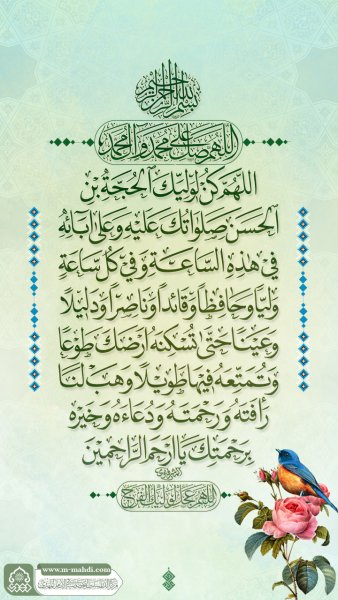 بسم الله الرحمن الرحيم
اللهم صل على محمد وآل محمد
اللَّهُمَّ كُنْ لِوَلِيِّكَ الْحُجَّةِ بْنِ
الْحَسَنِ صَلَوَاتُكَ عَلَيْهِ وَعَلَى آبَائِهِ
فِي هَذِهِ السَّاعَةِ وَفِي كُلِّ سَاعَةٍ
وَلِيًّا وَحَافِظًا وَقَائِدًا وَنَاصِرًا وَدَلِيلًا
وَعَيْنًا حَتَّى تُسْكِنَهُ أَرْضَكَ طَوْعًا
وَتُمَتِّعَهُ فِيهَا طَوِيلًا وَهَبْ لَنَا
رَأْفَتَهُ وَرَحْمَتَهُ وَدُعَاءَهُ وَخَيْرَهُ
بِرَحْمَتِكَ يَا أَرْحَمَ الرَّاحِمِينَ
اللهم عجل لوليك الفرج
www.m-mahdi.com